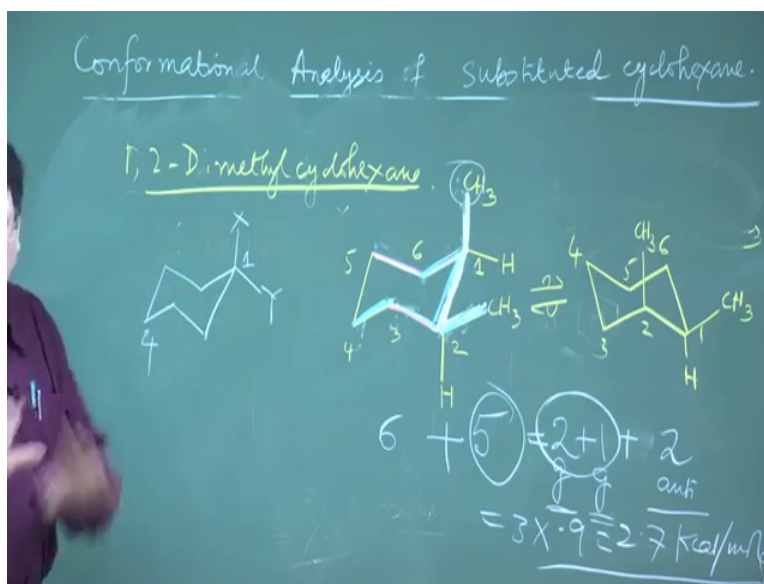 Conformational Analysis of substituted cyclohexane.
1,2-Dimethylcyclohexane.
X
1
Y
4
CH3
5
6
1
H
CH3
4
3
2
H
⇌
CH3
4
5
6
CH3
3
2
1
H
6 + 5 = 2+1 + 2
g g anti
= 3 x .9 = 2.7 Kcal/mol